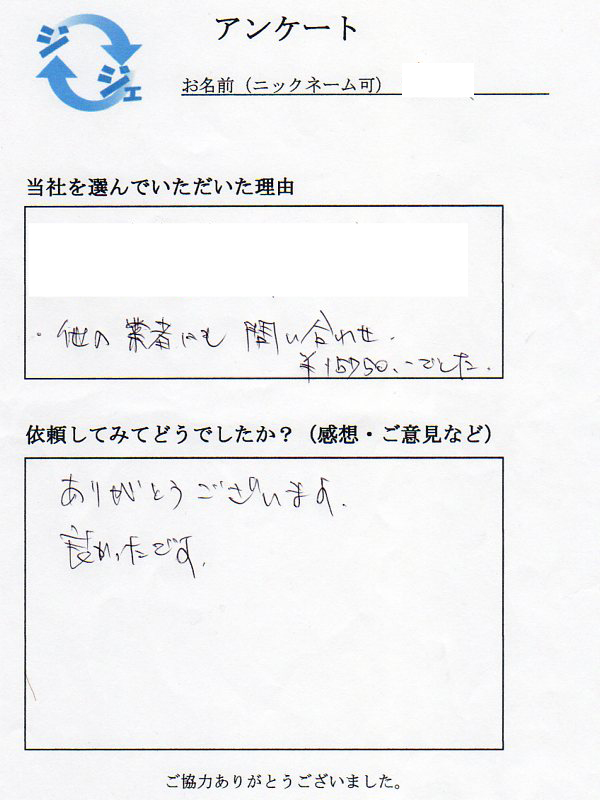 ジジェ
アンケート
お名前（ニックネーム可）
当社を選んでいただいた理由
・他の業者にも 問い合わせ.
¥15750.-でした.
依頼してみてどうでしたか？（感想・ご意見など）
ありがとうございます.
良かったです.
ご協力ありがとうございました。